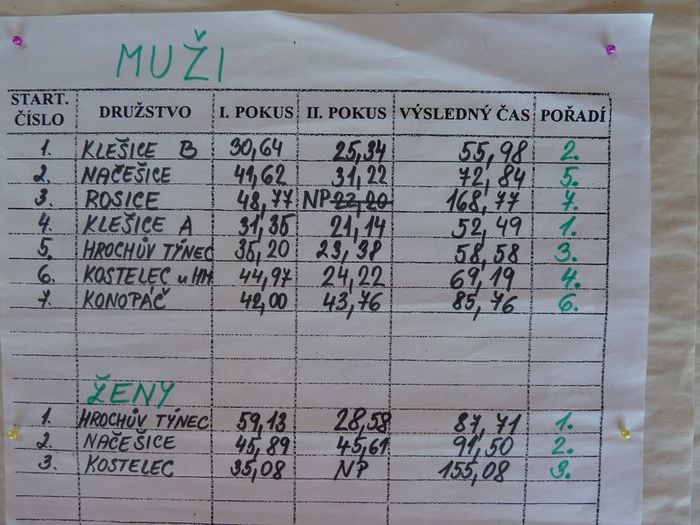 MUŽI
START. ČÍSLO DRUŽSTVO I. POKUS II. POKUS VÝSLEDNÝ ČAS POŘADÍ
1. KLEŠICE B 30,64 25,34 55,98 2.
2. NAČEŠICE 41,62 31,22 72,84 5.
3. ROSICE 48,77 NP 22,20 168,77 7.
4. KLEŠICE A 31,35 21,14 52,49 1.
5. HROCHŮV TÝNEC 35,20 23,38 58,58 3.
6. KOSTELEC u HM 44,97 24,22 69,19 4.
7. KONOPÁČ 42,00 43,76 85,76 6.
ŽENY
1. HROCHŮV TÝNEC 59,13 28,58 87,71 1.
2. NAČEŠICE 45,89 45,61 91,50 2.
3. KOSTELEC 35,08 NP 155,08 3.